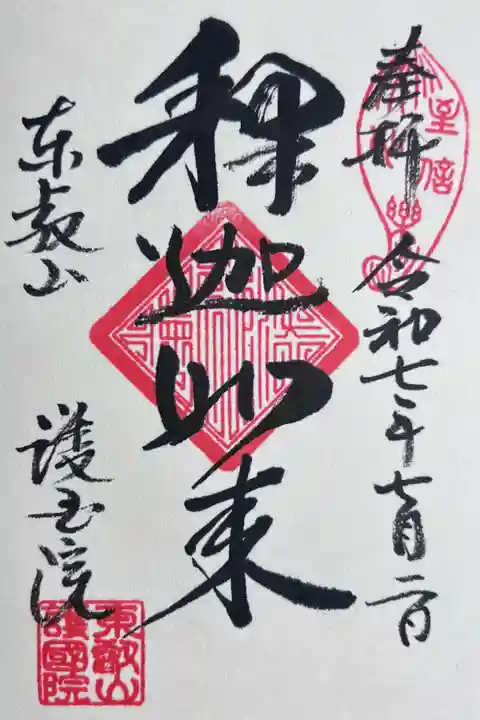 奉拝
令和七年七月二日
釈迦如来
东叡山
護国院
東叡山
護國院